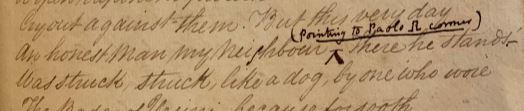 cry out against them. But this very day
(pointing to Paolo R. corner)
An honest man my neighbour ^ there he stands
Was struck, struck, like a dog, by one who wore
because forsooth